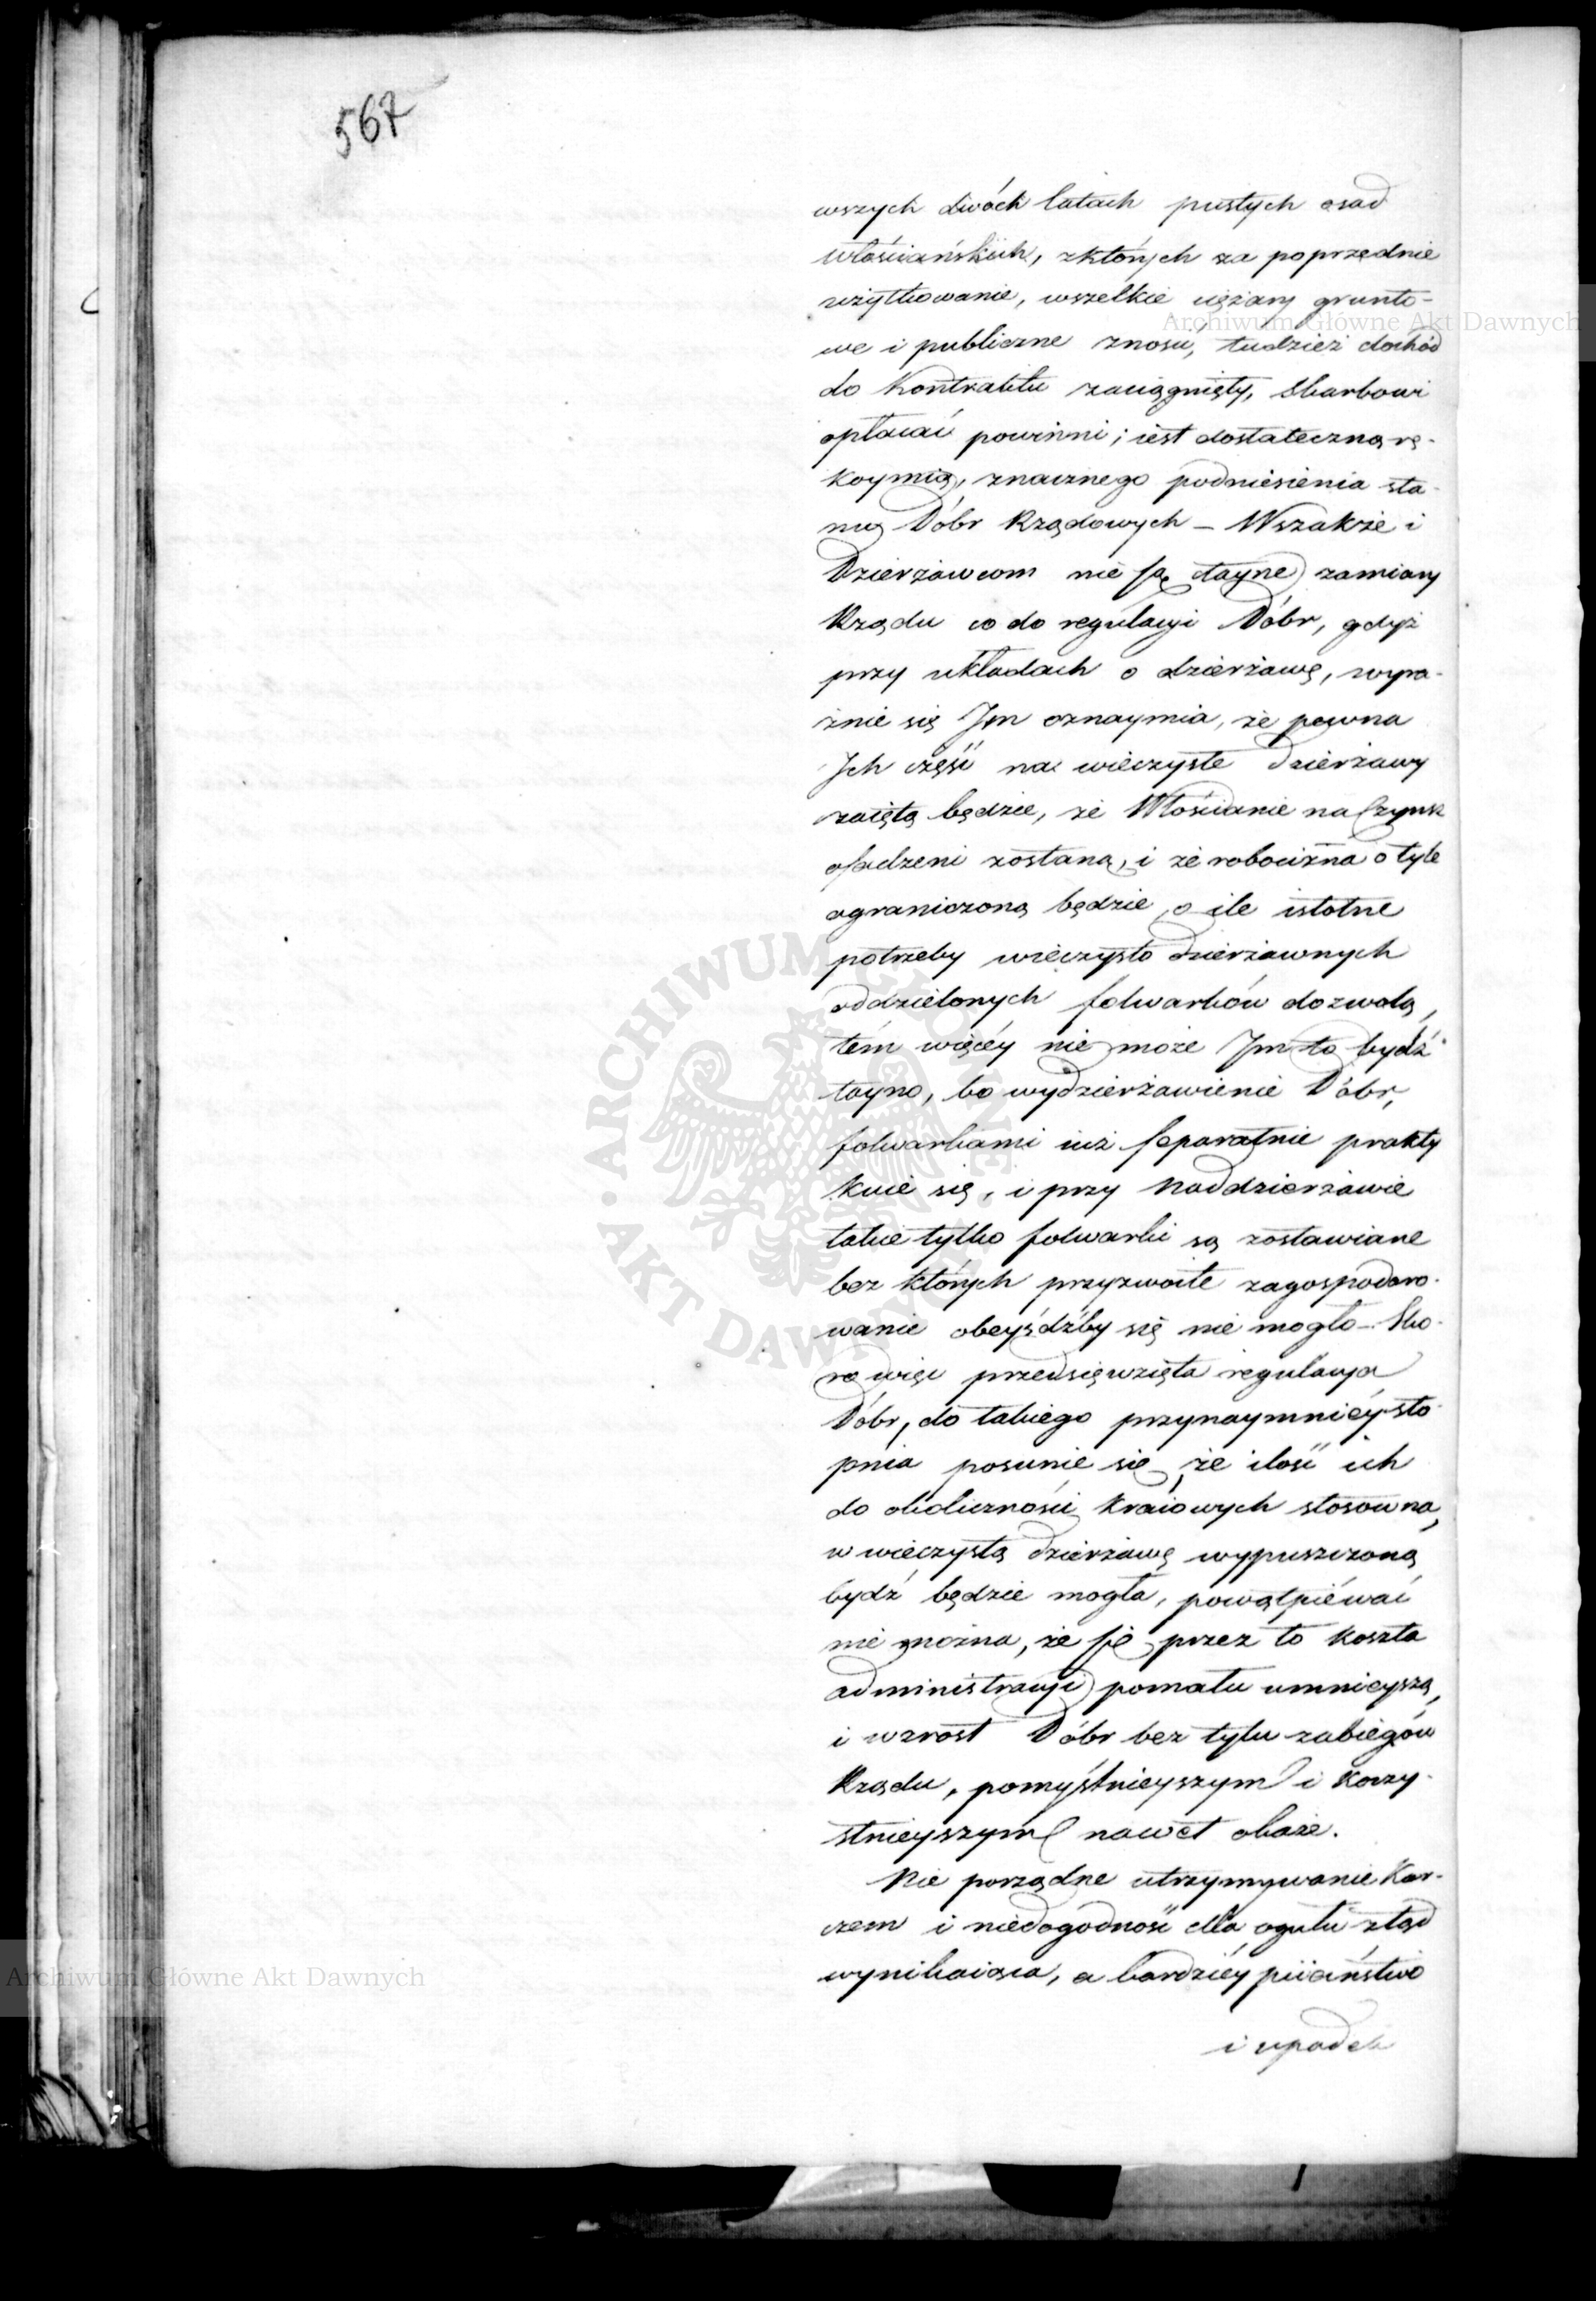 567
wszych dwóch latach pustych osad
włościańskich, z których za poprzednie
użytkowanie, wszelkie ciężary grunto-
we i publiczne znosić, tudzież dochód
do Kontraktu zaciągnięty, Skarbowi
opłacać powinni; iest dostateczną rę-
koymią, znacznego podniesienia sta-
nu Dóbr Rządowych – Wszakże i
Dzierżawcom nie są tayne zamiary
Rządu co do regulacyi Dóbr, gdyż
przy układach o dzierżawę, wyra-
źnie się Im oznaymia, że pewna
Ich część na wieczyste dzierżawy
zaiętą będzie, że Włościanie na Czynsz
osadzeni zostaną, i że robocizna o tyle
ograniczoną będzie, o ile istotne
potrzeby wieczysto dzierżawnych
oddzielonych folwarków dozwolą,
tém więcéy nie może Im to bydź
tayno, bo wydzierżawienie Dóbr,
folwarkami iuż separatnie prakty
kuie się, i przy Naddzierżawie
takie tylko folwarki są zostawiane
bez których przyzwoite zagospodaro-
wanie obeyśdźby się nie mogło – Sko-
ro więc przedsięwzięta regulacya
Dóbr, do takiego przynaymniéy sto
pnia posunie się, że ilość ich
do okoliczności Kraiowych stosowna,
w wieczystą dzierżawę wypuszczoną
bydź będzie mogła, powątpiéwać
nie można, że się przez to koszta
administracyi pomału umnieyszą,
i wzrost Dóbr bez tylu zabiegów
Rządu, pomyślnieyszym i korzy-
stnieyszym nawet okaże.
Nie porządne utrzymywanie Kar-
czem i niedogodność dla ogułu ztąd
wynikaiąca, a bardziéy piiaństwo
i upadek
Archiwum Główne Akt Dawnych
Archiwum Główne Akt Dawnych
ARCHIWUM GŁÓWNE AKT DAWNYCH